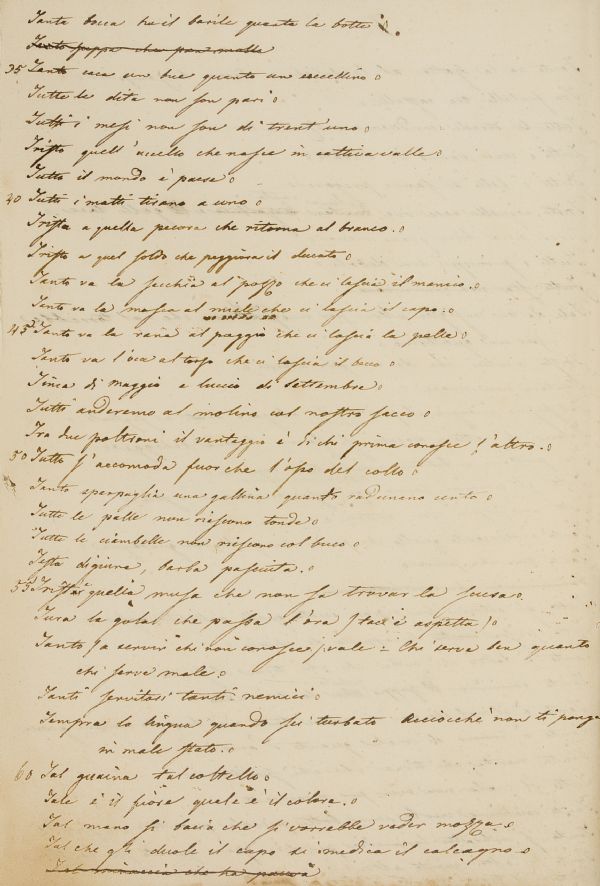 Tanta bocca ha il barile quanta la botte
Tanto pappa che pan molle
35 Tanto caca un bue quanto un uccellino
Tutte le dita non son pari
Tutti i mesi non son di trent'uno
Tristo quell'uccello che nasce in cattiva valle
Tutto il mondo è paese
40 Tutti i matti tirano a uno
Trista a quella pecora che ritorna al branco.
Tristo a quel soldo che peggiora il ducato
Tanto va la secchia al pozzo che ci lascia il manico
Tanto va la mosca al miele che ci lascia il capo.
45 Tanto va la rana al poggio che ci lascia la pelle
Tanto va l'oca al torso che ci lascia il becco
Tinca di maggio e luccio di settembre
Tutti anderemo al molino col nostro sacco
Tra due poltroni il vantaggio è di chi prima conosce l'altro.
50 Tutto s'accomoda fuor che l'osso del collo
Tanto sparpaglia una gallina quanto radunano cento
Tutte le palle non riescono tonde
Tutte le ciambelle non riescono col buco
Testa digiuna, barba pasciuta.
55 Trista è quella musa che non sa trovar la scusa
Tura la gola che passa l'ora (taci e aspetta)
Tanto (a servir chi non conosce) vale = Chi serva ben quanto
chi serve male
Tanti servitori tanti nemici
Tempra la lingua quando sei turbato Acciocchè non ti ponga
in male stato.
60 Tal guaina tal coltello
Tale è il fiore quale è il colore.
Tal mano si bacia che si vorrebbe veder mozza
Tal che gli duole il capo si medica il calcagno
Tal minaccia che ha paura